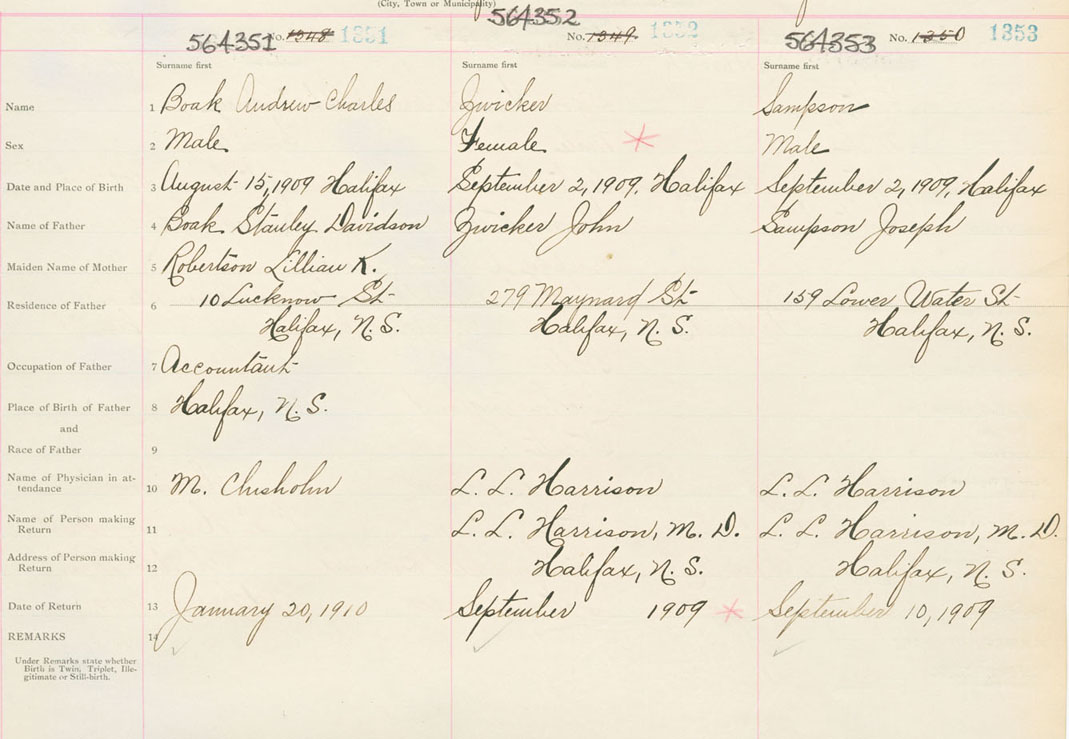 (City, Town or Municipality)
564351 No. 1348 1351 564352 No. 1349 1352 564353 No. 1350 1353
Surname first Surname first Surname first
Name 1 Boak Andrew Charles Zwicker Sampson
Sex 2 Male Female Male
Date and Place of Birth 3 August 15, 1909 Halifax September 2, 1909, Halifax September 2, 1909, Halifax
Name of Father 4 Boak Stanley Davidson Zwicker John Sampson Joseph
Maiden Name of Mother 5 Robertson Lillian K.
Residence of Father 6 10 Lucknow St 279 Maynard St 159 Lower Water St
Halifax, N. S. Halifax, N. S. Halifax, N. S.
Occupation of Father 7 Accountant
Place of Birth of Father 8 Halifax, N. S.
and
Race of Father 9
Name of Physician in at-
tendance 10 M. Chisholm L. L. Harrison L. L. Harrison
Name of Person making
Return 11 L. L. Harrison, M. D. L. L. Harrison, M. D.
Address of Person making
Return 12 Halifax, N. S. Halifax, N. S.
Date of Return 13 January 20, 1910 September 1909 September 10, 1909
REMARKS 14
Under Remarks state whether
Birth is Twin, Triplet, Ille-
gitimate or Still-birth.